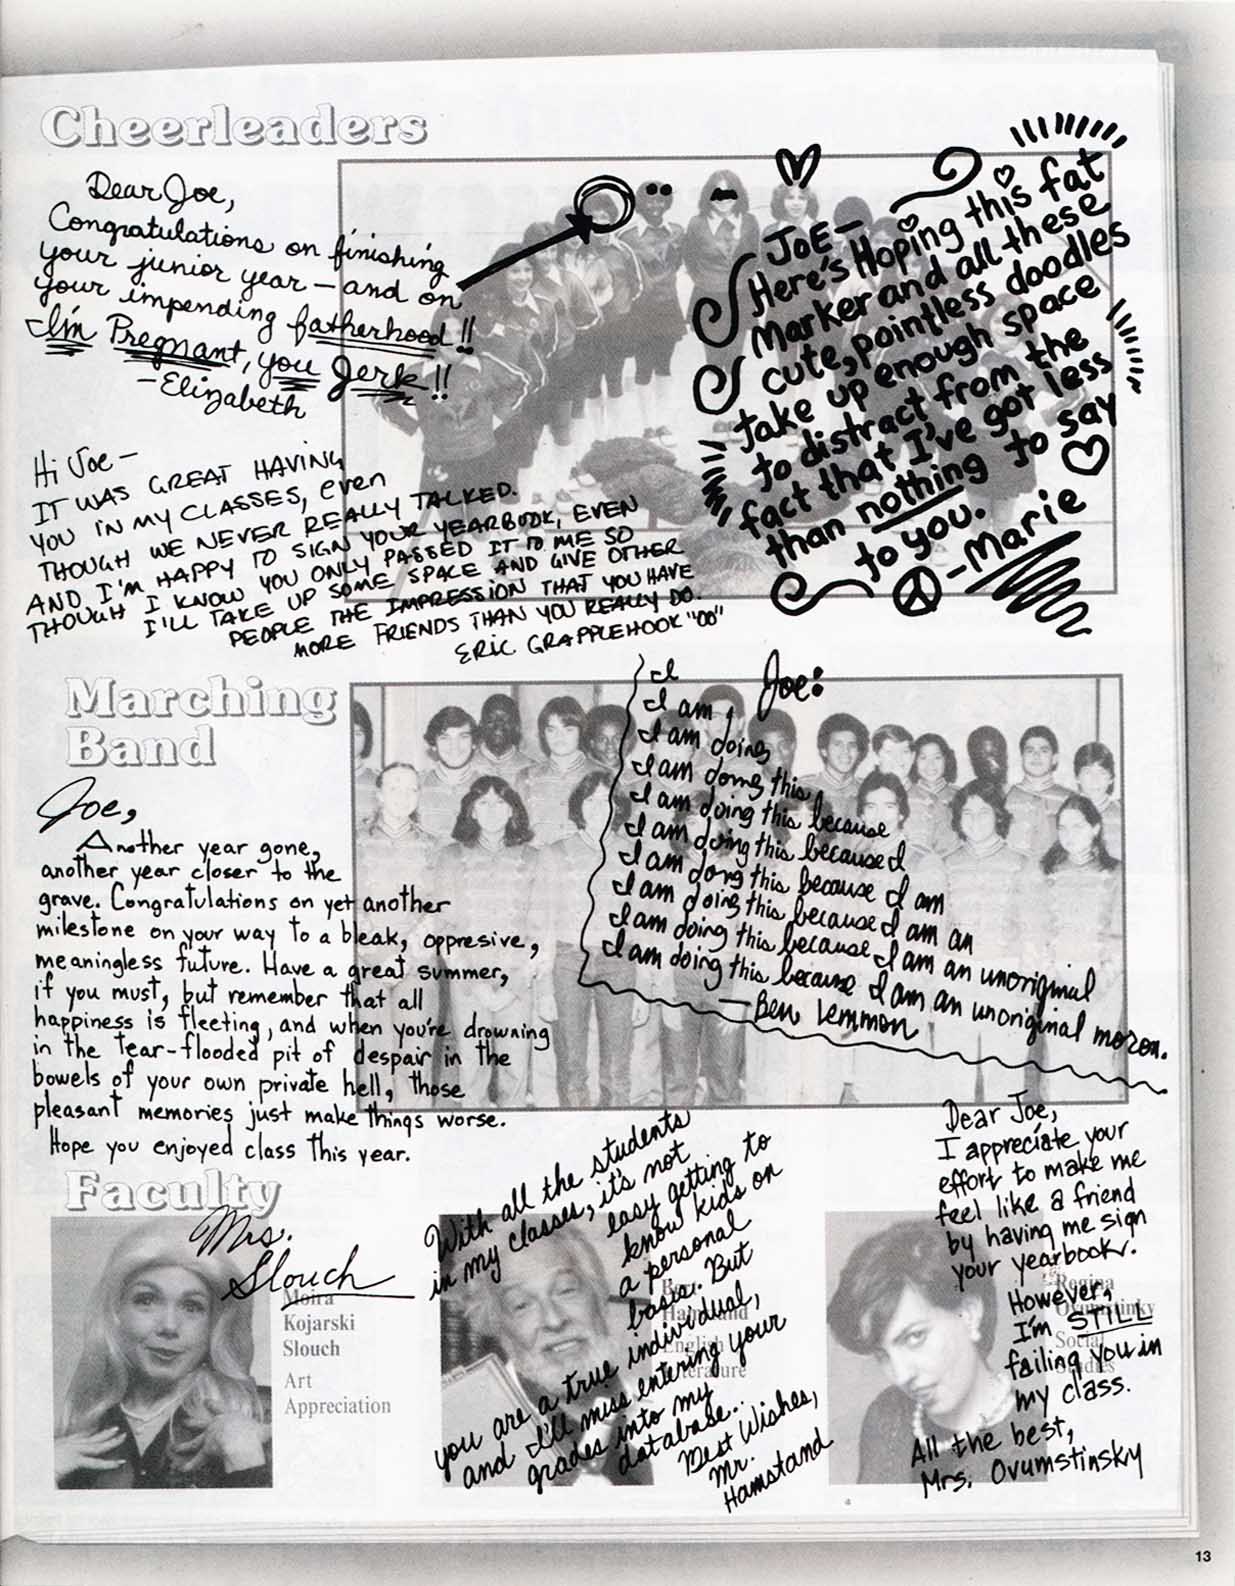 Cheerleaders
Dear Joe,
Congratulations on finishing
your junior year — and on
your impending fatherhood!!
I'm Pregnant, you Jerk!!
— Elizabeth
JOE —
Here's Hoping this fat
Marker and all these
cute, pointless doodles
take up enough space
to distract from the
fact that I've got less
than nothing to say
to you.
— Marie
Hi Joe —
IT WAS GREAT HAVING
YOU IN MY CLASSES, even
THOUGH WE NEVER REALLY TALKED.
AND I'M HAPPY TO SIGN YOUR YEARBOOK, EVEN
THOUGH I KNOW YOU ONLY PASSED IT TO ME SO
I'LL TAKE UP SOME SPACE AND GIVE OTHER
PEOPLE THE IMPRESSION THAT YOU HAVE
MORE FRIENDS THAN YOU REALLY DO.
ERIC GRAPPLEHOOK "00"
Marching
Band
Joe:
I
I am
I am doing
I am doing this
I am doing this because
I am doing this because I
I am dong this because I am
I am doing this because I am an
I am doing this because I am an unoriginal
I am doing this because I am an unoriginal moron.
— Ben Lemmon
Joe,
Another year gone,
another year closer to the
grave. Congratulations on yet another
milestone on your way to a bleak, oppresive,
meaningless future. Have a great summer,
if you must, but remember that all
happiness is fleeting, and when you're drowning
in the tear-flooded pit of despair in the
bowels of your own private hell, those
pleasant memories just make things worse.
Hope you enjoyed class this year.
Faculty
Mrs.
Slouch
Moira
Kojarski
Slouch
Art
Appreciation
With all the students
in my classes, it's not
easy getting to
know kids on
a personal
basis. But
you are a true individual,
and I'll miss entering your
grades into my
database..
Best Wishes,
Mr.
Hamstand
Hamstand
English
Literature
Dear Joe,
I appreciate your
effort to make me
feel like a friend
by having me sign
your yearbook.
However,
I'm STILL
failing you in
my class.
All the best,
Mrs. Ovumstinsky
Regina
Ovumstinky
Social
Studies
13